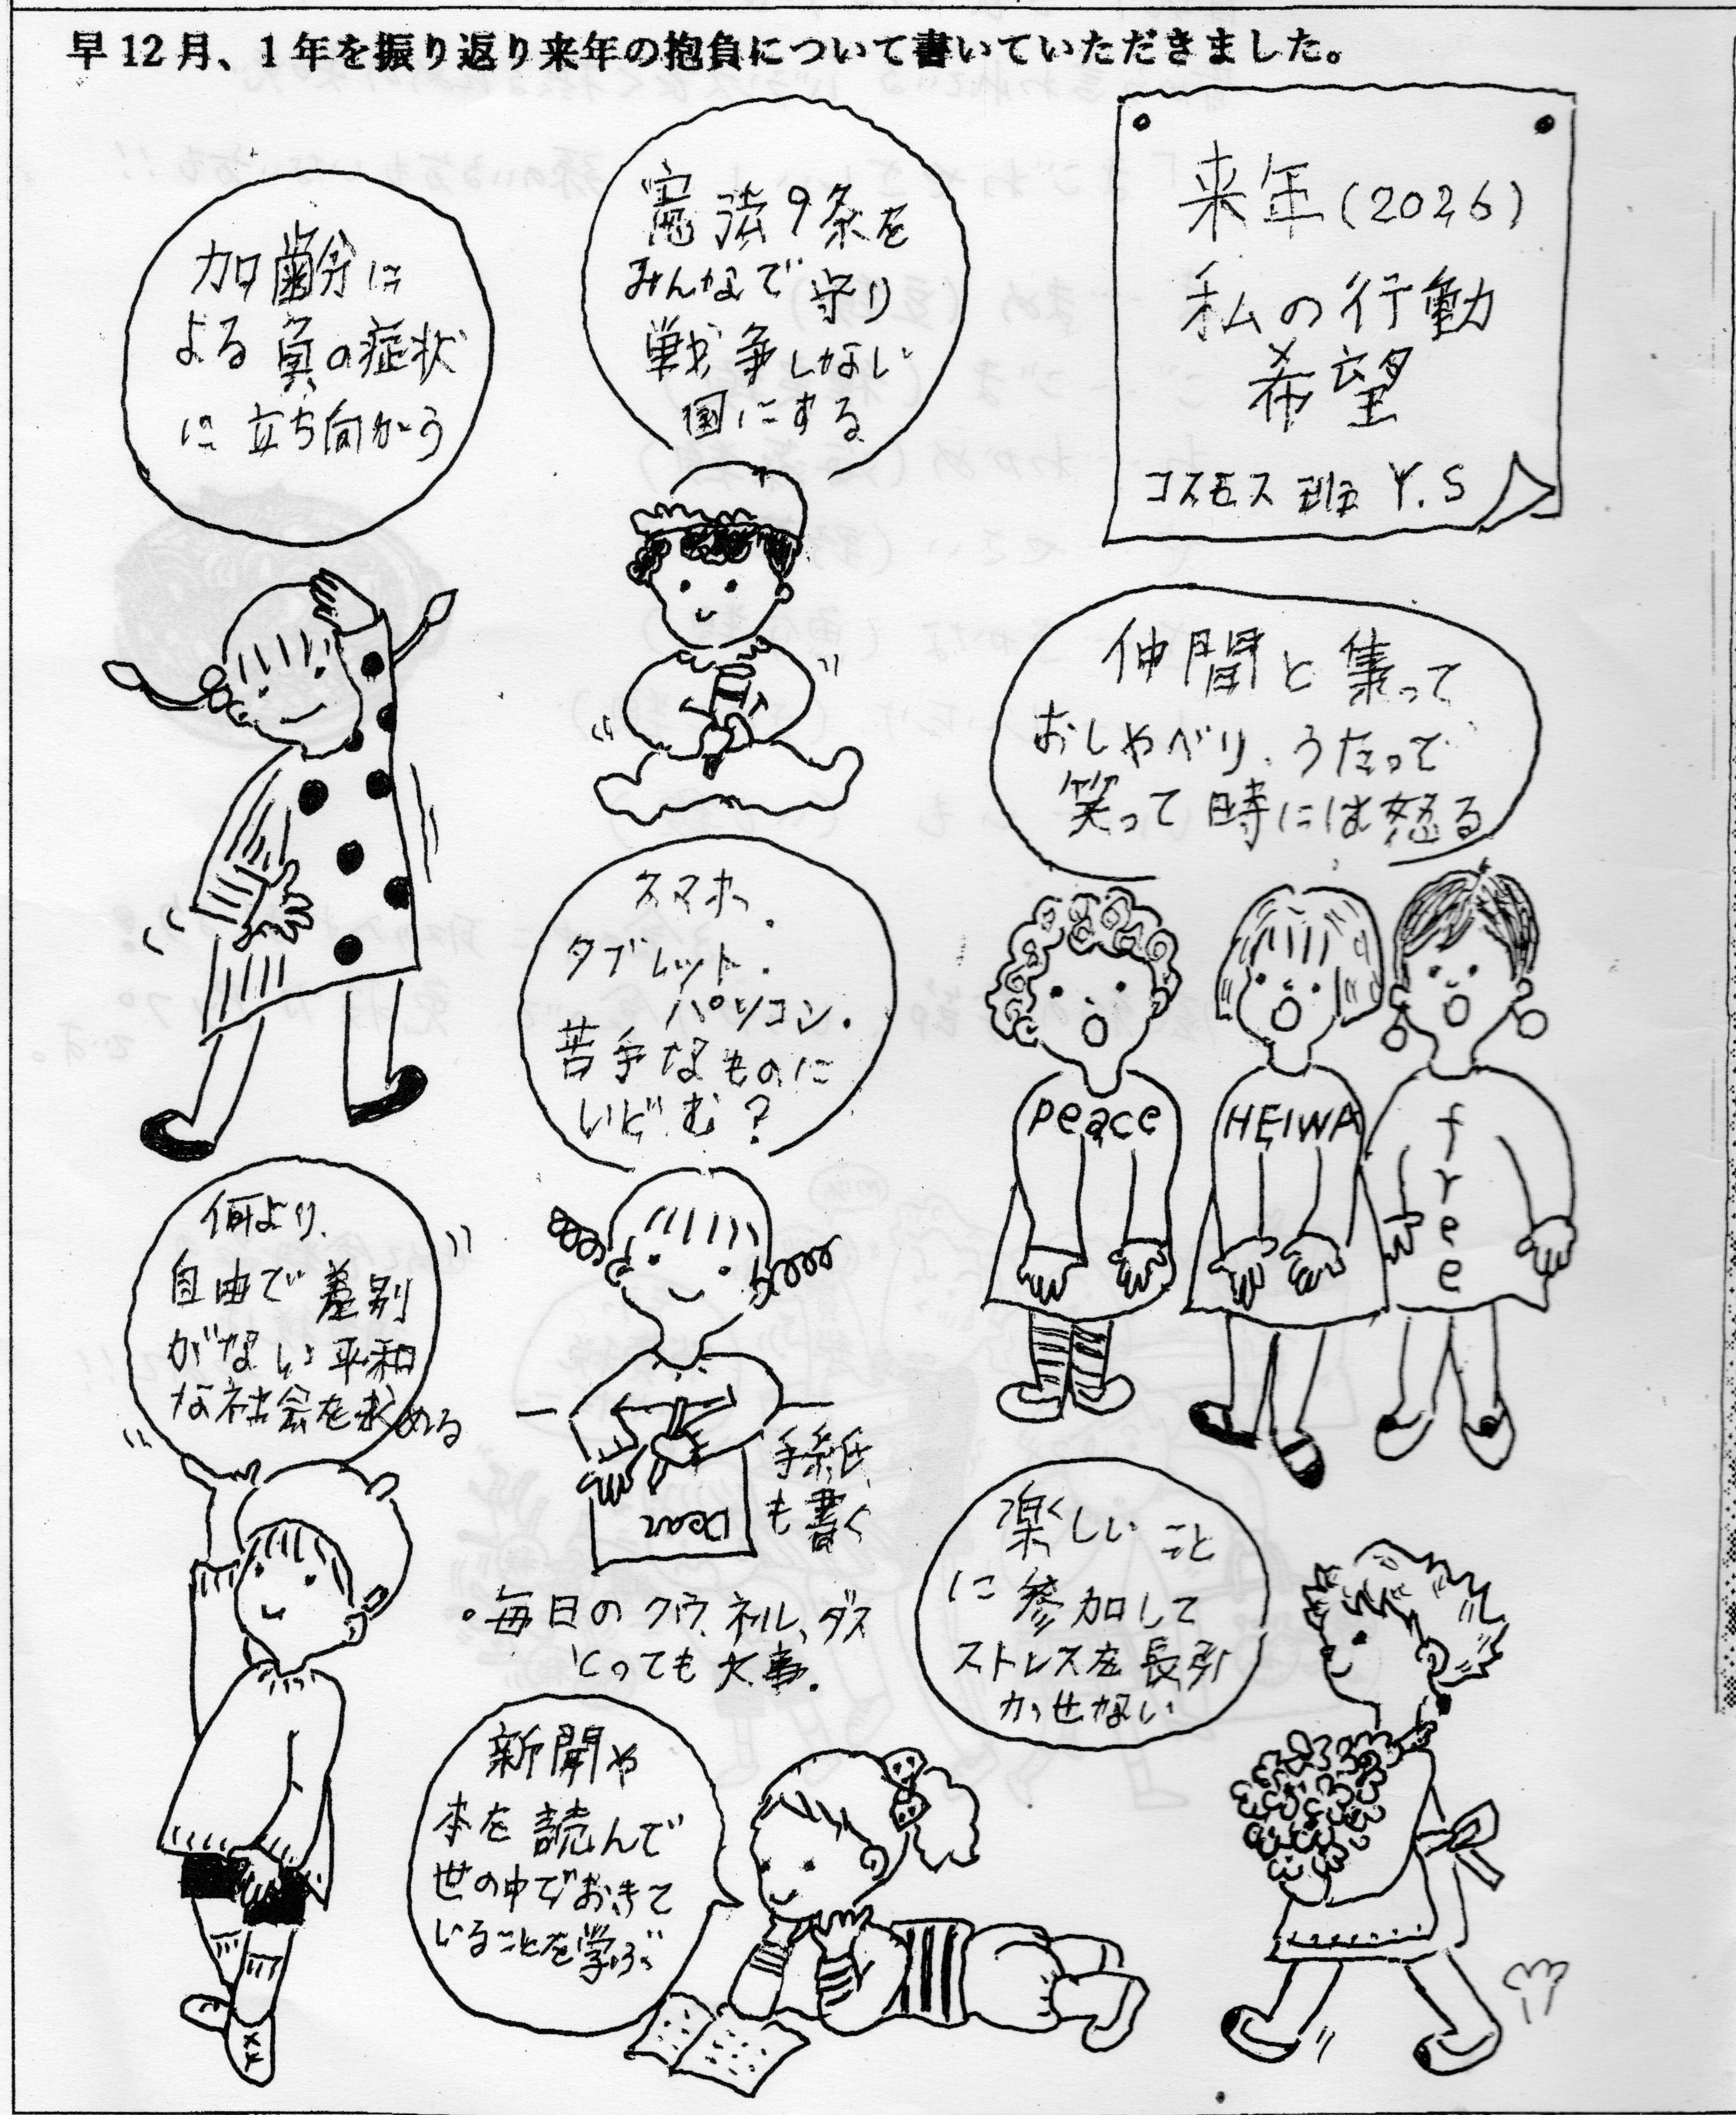 早12月、1年を振り返り来年の抱負について書いていただきました。
来年(2026)
私の行動
希望
コスモス班 Y.S
憲法9条を
みんなで守り
戦争しない
国にする
加齢に
よる負の症状
に立ち向かう
仲間と集って
おしゃべり、うたって
笑って時には怒る
peace
HEIWA
free
スマホ.
タブレット.
パソコン.
苦手なものに
いどむ?
手紙
も書く
Dear
何より、
自由で差別
がない平和
な社会を求める
・毎日のクウ、ネル、ダス
とっても大事.
楽しいこと
に参加して
ストレスを長引
かせない
新聞や
本を読んで
世の中でおきて
いることを学ぶ